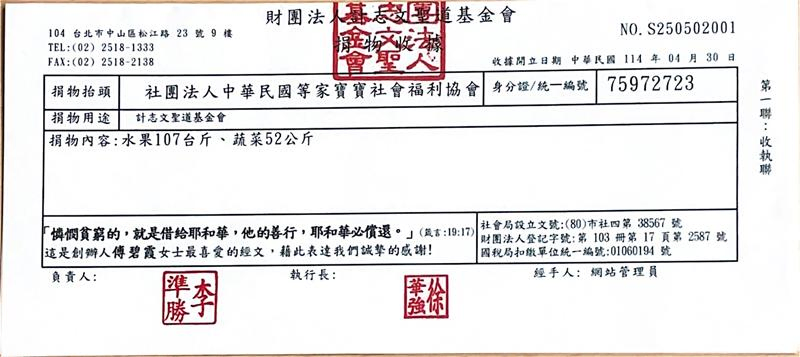 財團法人計志文聖道基金會
捐物收據
104 台北市中山區松江路 23 號 9 樓
TEL:(02) 2518-1333
FAX:(02) 2518-2138
NO. S250502001
收據開立日期 中華民國 114 年 04 月 30 日
捐物抬頭 社團法人中華民國等家寶寶社會福利協會 身分證/統一編號 75972723
捐物用途 計志文聖道基金會
捐物內容:水果107台斤、蔬菜52公斤
第一聯:收執聯
「憐憫貧窮的,就是借給耶和華,他的善行,耶和華必償還。」(箴言:19:17)
這是創辦人傅碧霞女士最喜愛的經文,藉此表達我們誠摯的感謝!
社會局設立文號:(80)市社四第 38567 號
財團法人登記字號:第 103 冊第 17 頁第 2587 號
國稅局扣繳單位統一編號:01060194 號
負責人:
李子準勝
執行長:
徐華強
經手人: 網站管理員